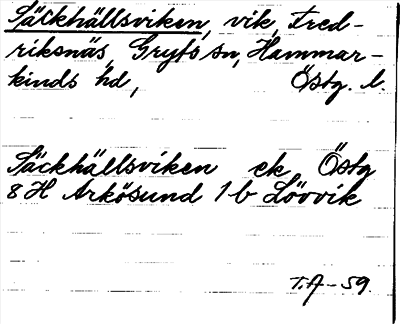 Säckhällsviken, vik, Fred-
riksnäs, Gryts sn, Hammar-
kinds hd, Östg. l.
Säckhällsviken ek Östg
8H Arkösund 1b Lövvik
T.A-59.